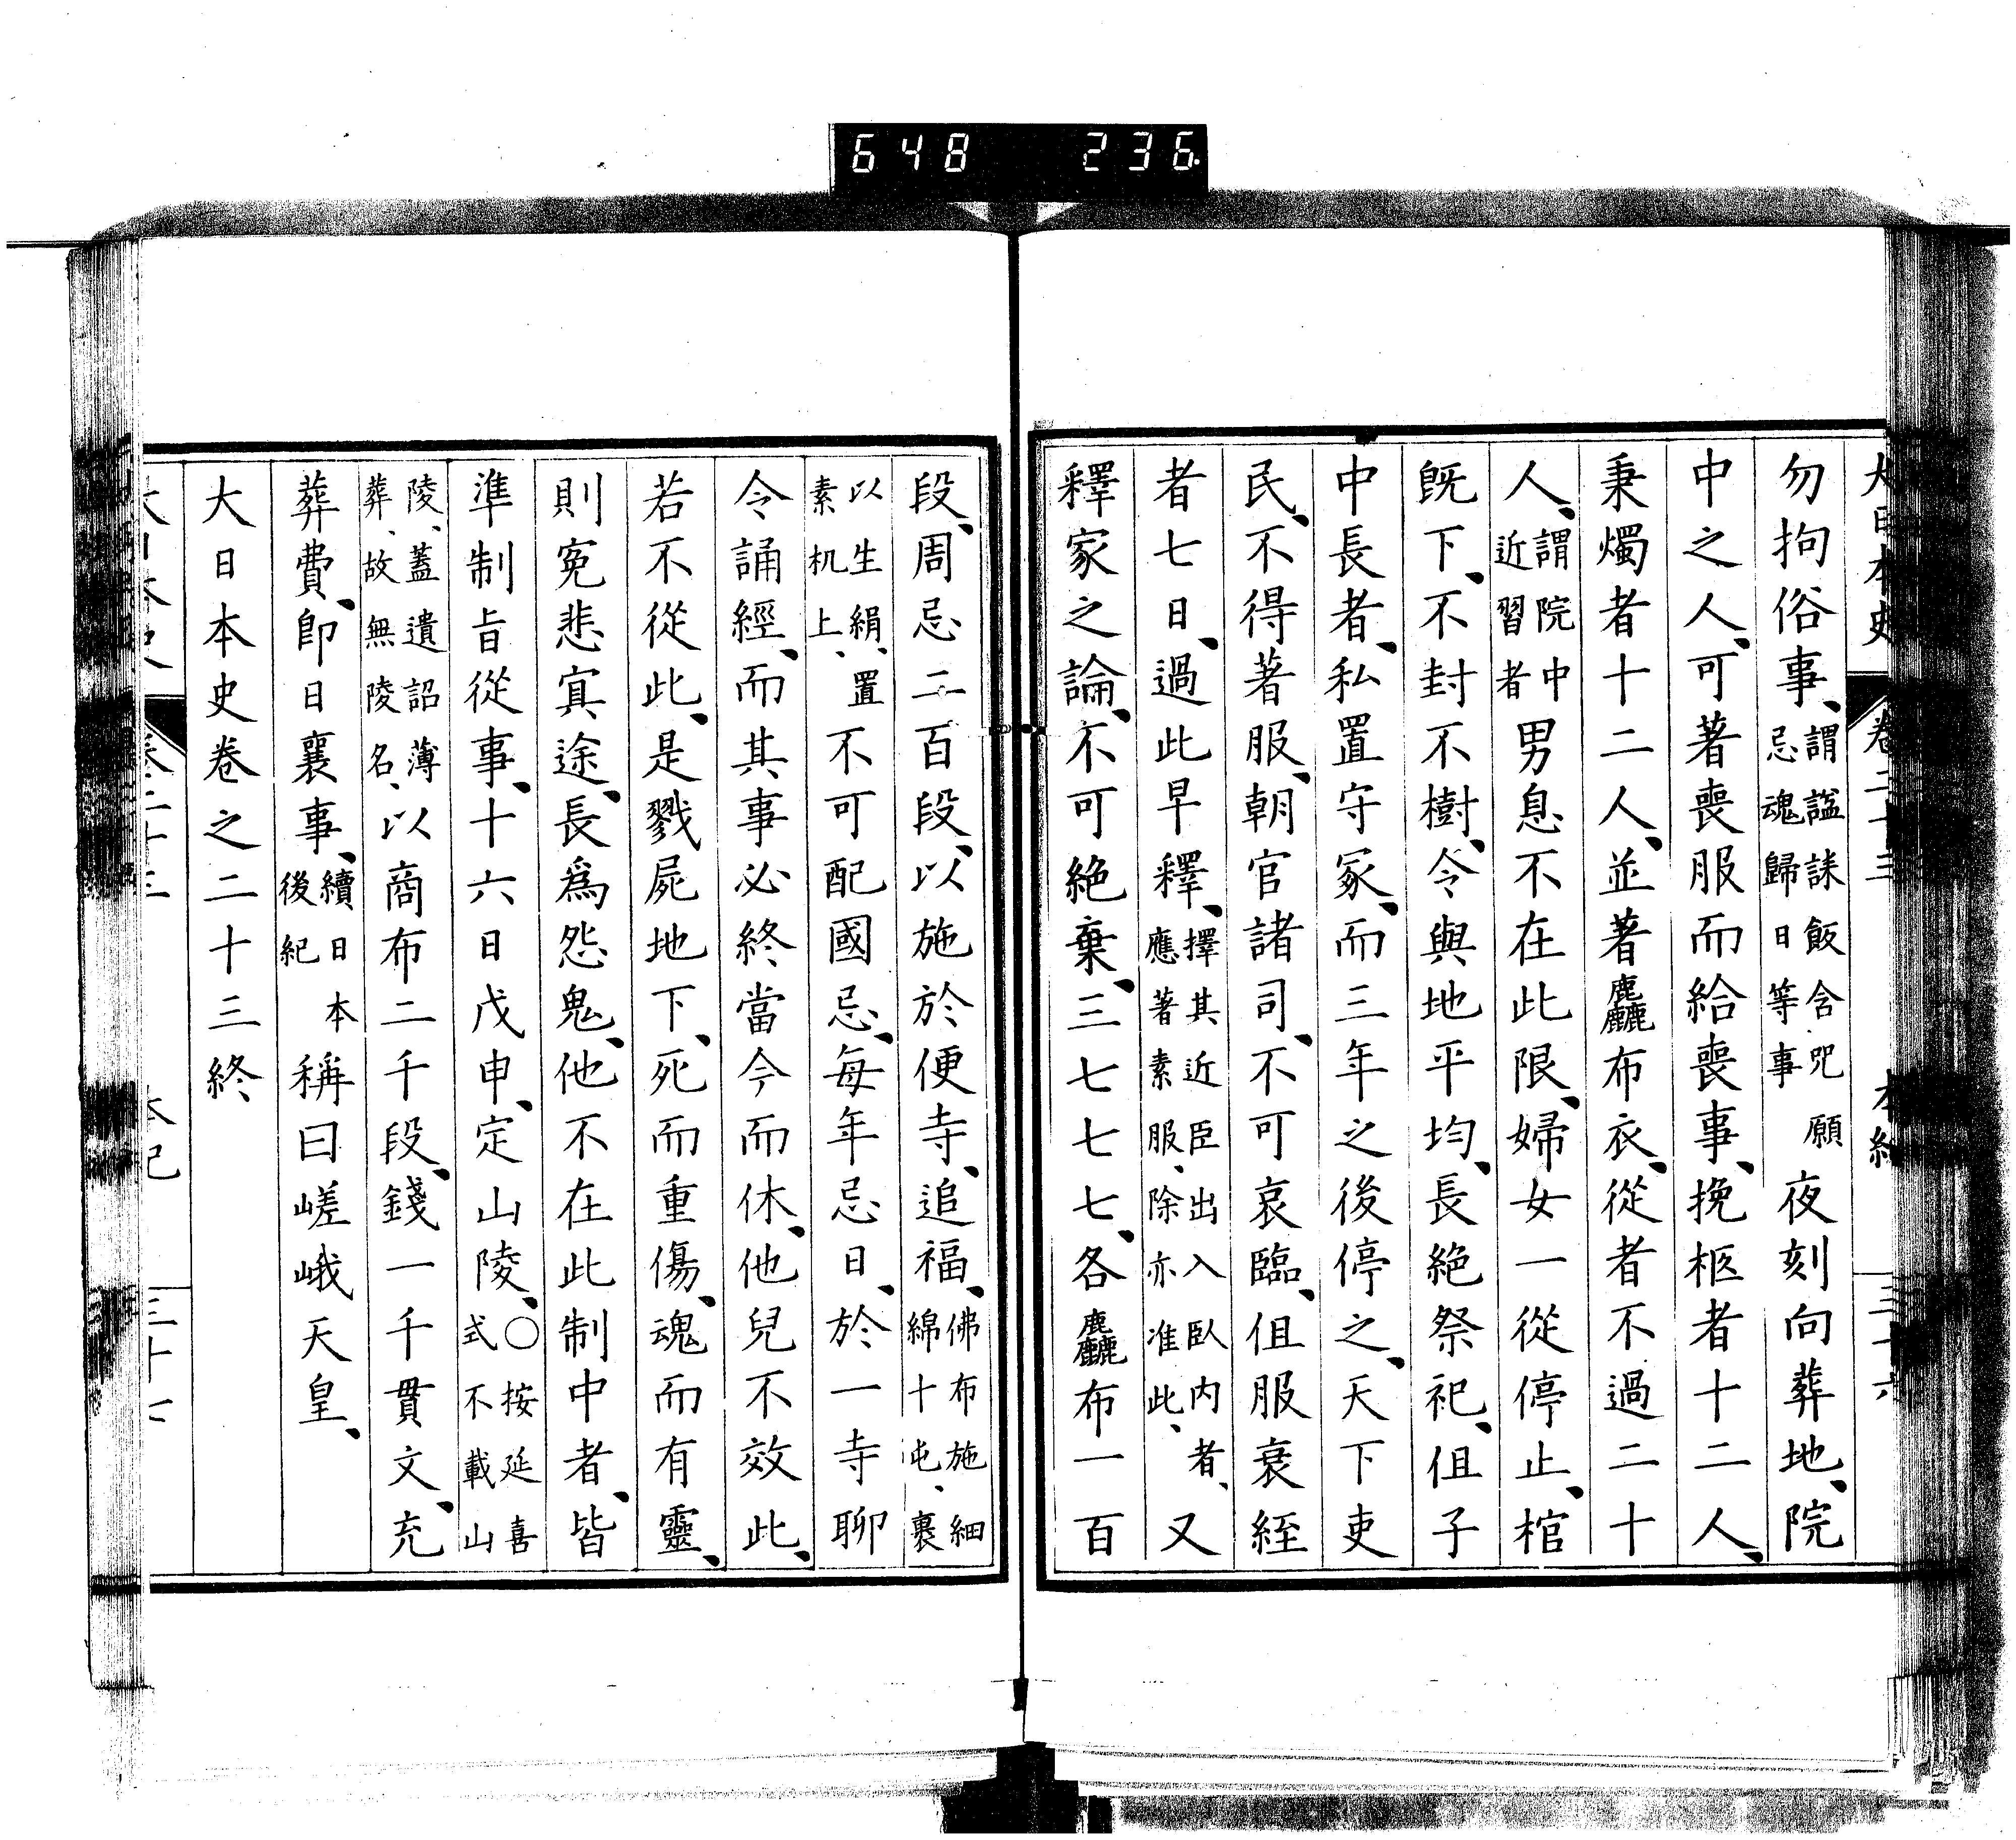 648 236
大日本史 卷二十三 本紀 三十六
勿拘俗事、謂諡誄飯含咒願忌魂歸日等事夜刻向葬地、院
中之人、可著喪服而給喪事、挽柩者十二人、
秉燭者十二人、並著麤布衣、從者不過二十
人、謂院中近習者男息不在此限、婦女一從停止、棺
既下、不封不樹、令與地平均、長絶祭祀、但子
中長者、私置守冢、而三年之後停之、天下吏
民、不得著服、朝官諸司、不可哀臨、但服衰絰
者七日、過此早釋、擇其近臣出入臥内者、應著素服、除亦准此、又
釋家之論、不可絶棄、三七七七七、各麤布一百
段、周忌二百段、以施於便寺、追福、佛布施細綿十屯、裹
以生絹、置素机上、不可配國忌、每年忌日、於一寺聊
令誦經、而其事必終當今而休、他兒不效此、
若不從此、是戮屍地下、死而重傷、魂而有靈、
則冤悲冥途、長爲怨鬼、他不在此制中者、皆
準制旨從事、十六日戊申、定山陵、○按延喜式不載山
陵、蓋遺詔薄葬、故無陵名、以商布二千段、錢一千貫文、充
葬費、卽日襄事、續日本後紀稱曰嵯峨天皇、
大日本史卷之二十三終
大日本史 卷二十三 本紀 三十七